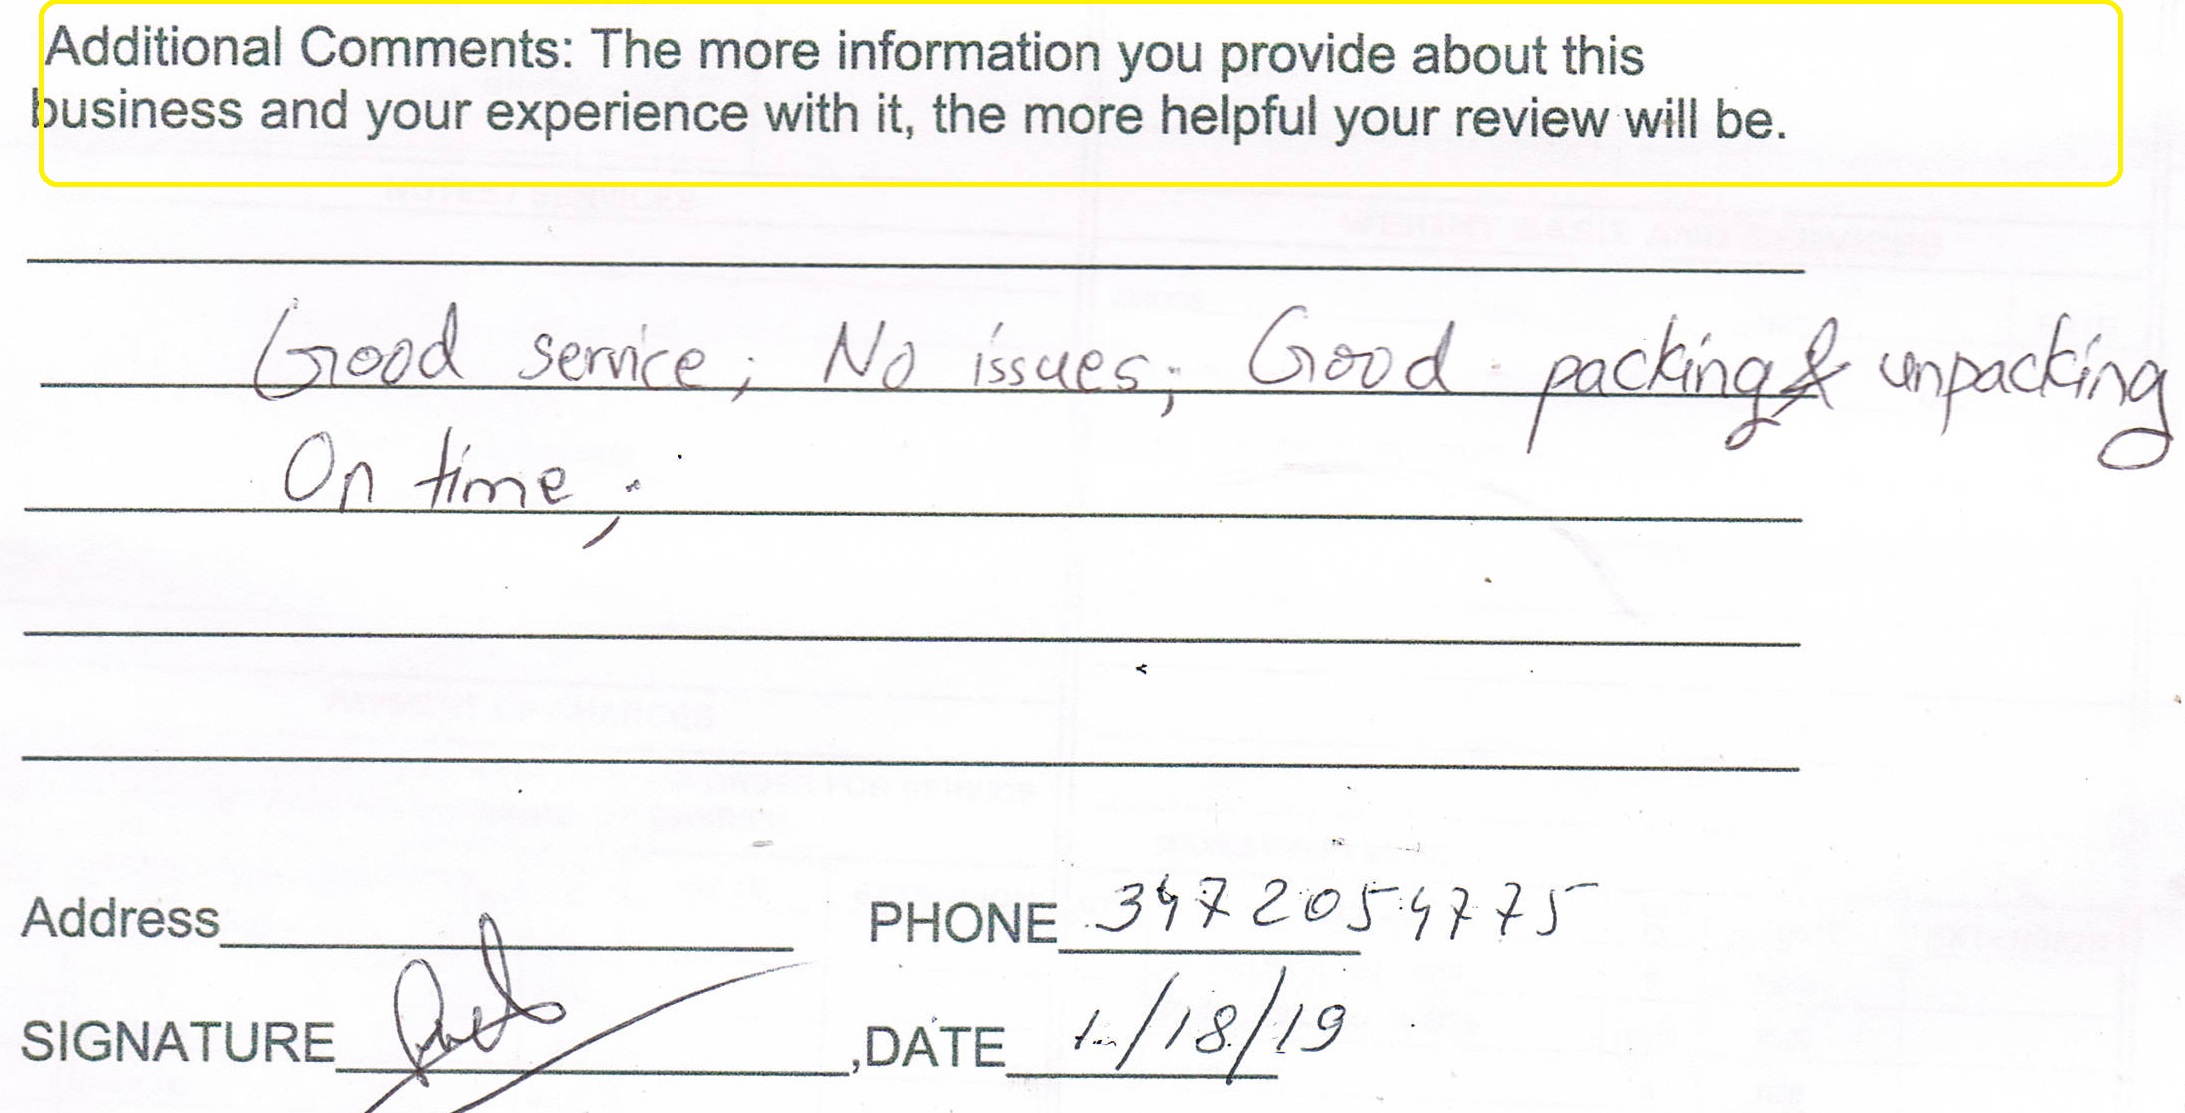 Additional Comments: The more information you provide about this
business and your experience with it, the more helpful your review will be.
Good service; No issues; Good packing & unpacking
On time;
Address PHONE 3472054775
SIGNATURE ,DATE 1/18/19